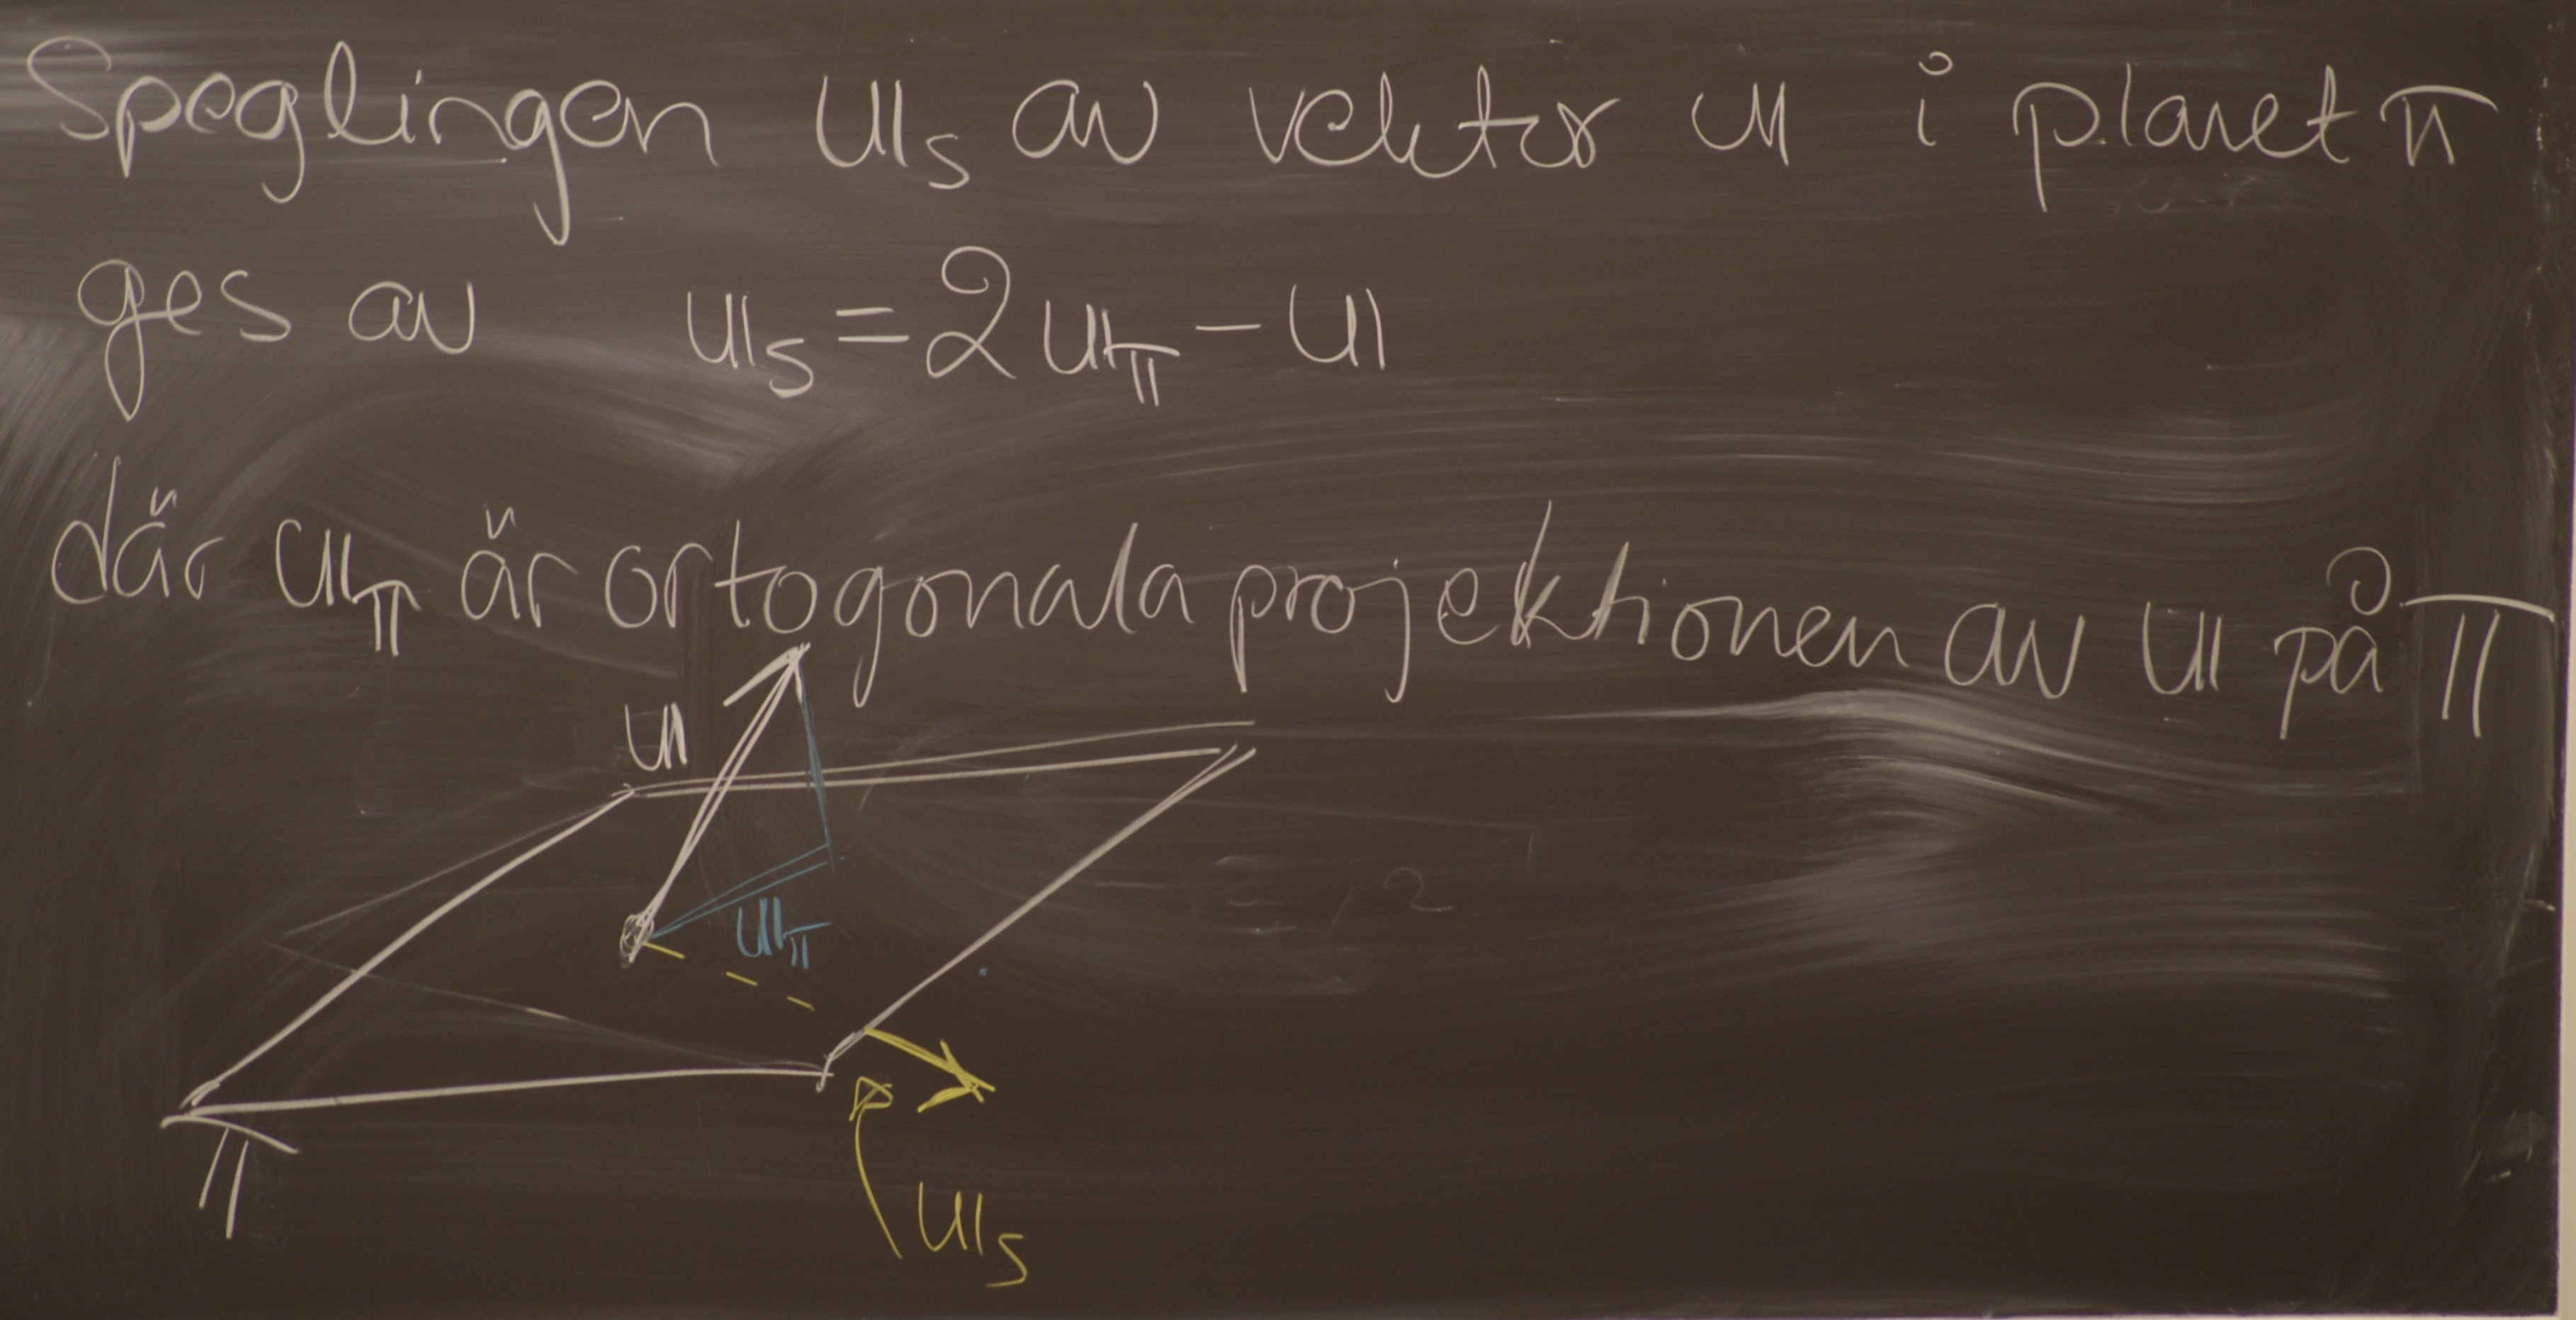 Speglingen 𝕦ₛ av vektor 𝕦 i planet π
ges av 𝕦ₛ = 2𝕦_π − 𝕦
där 𝕦_π är ortogonala projektionen av 𝕦 på π
𝕦
𝕦_π
π
𝕦ₛ